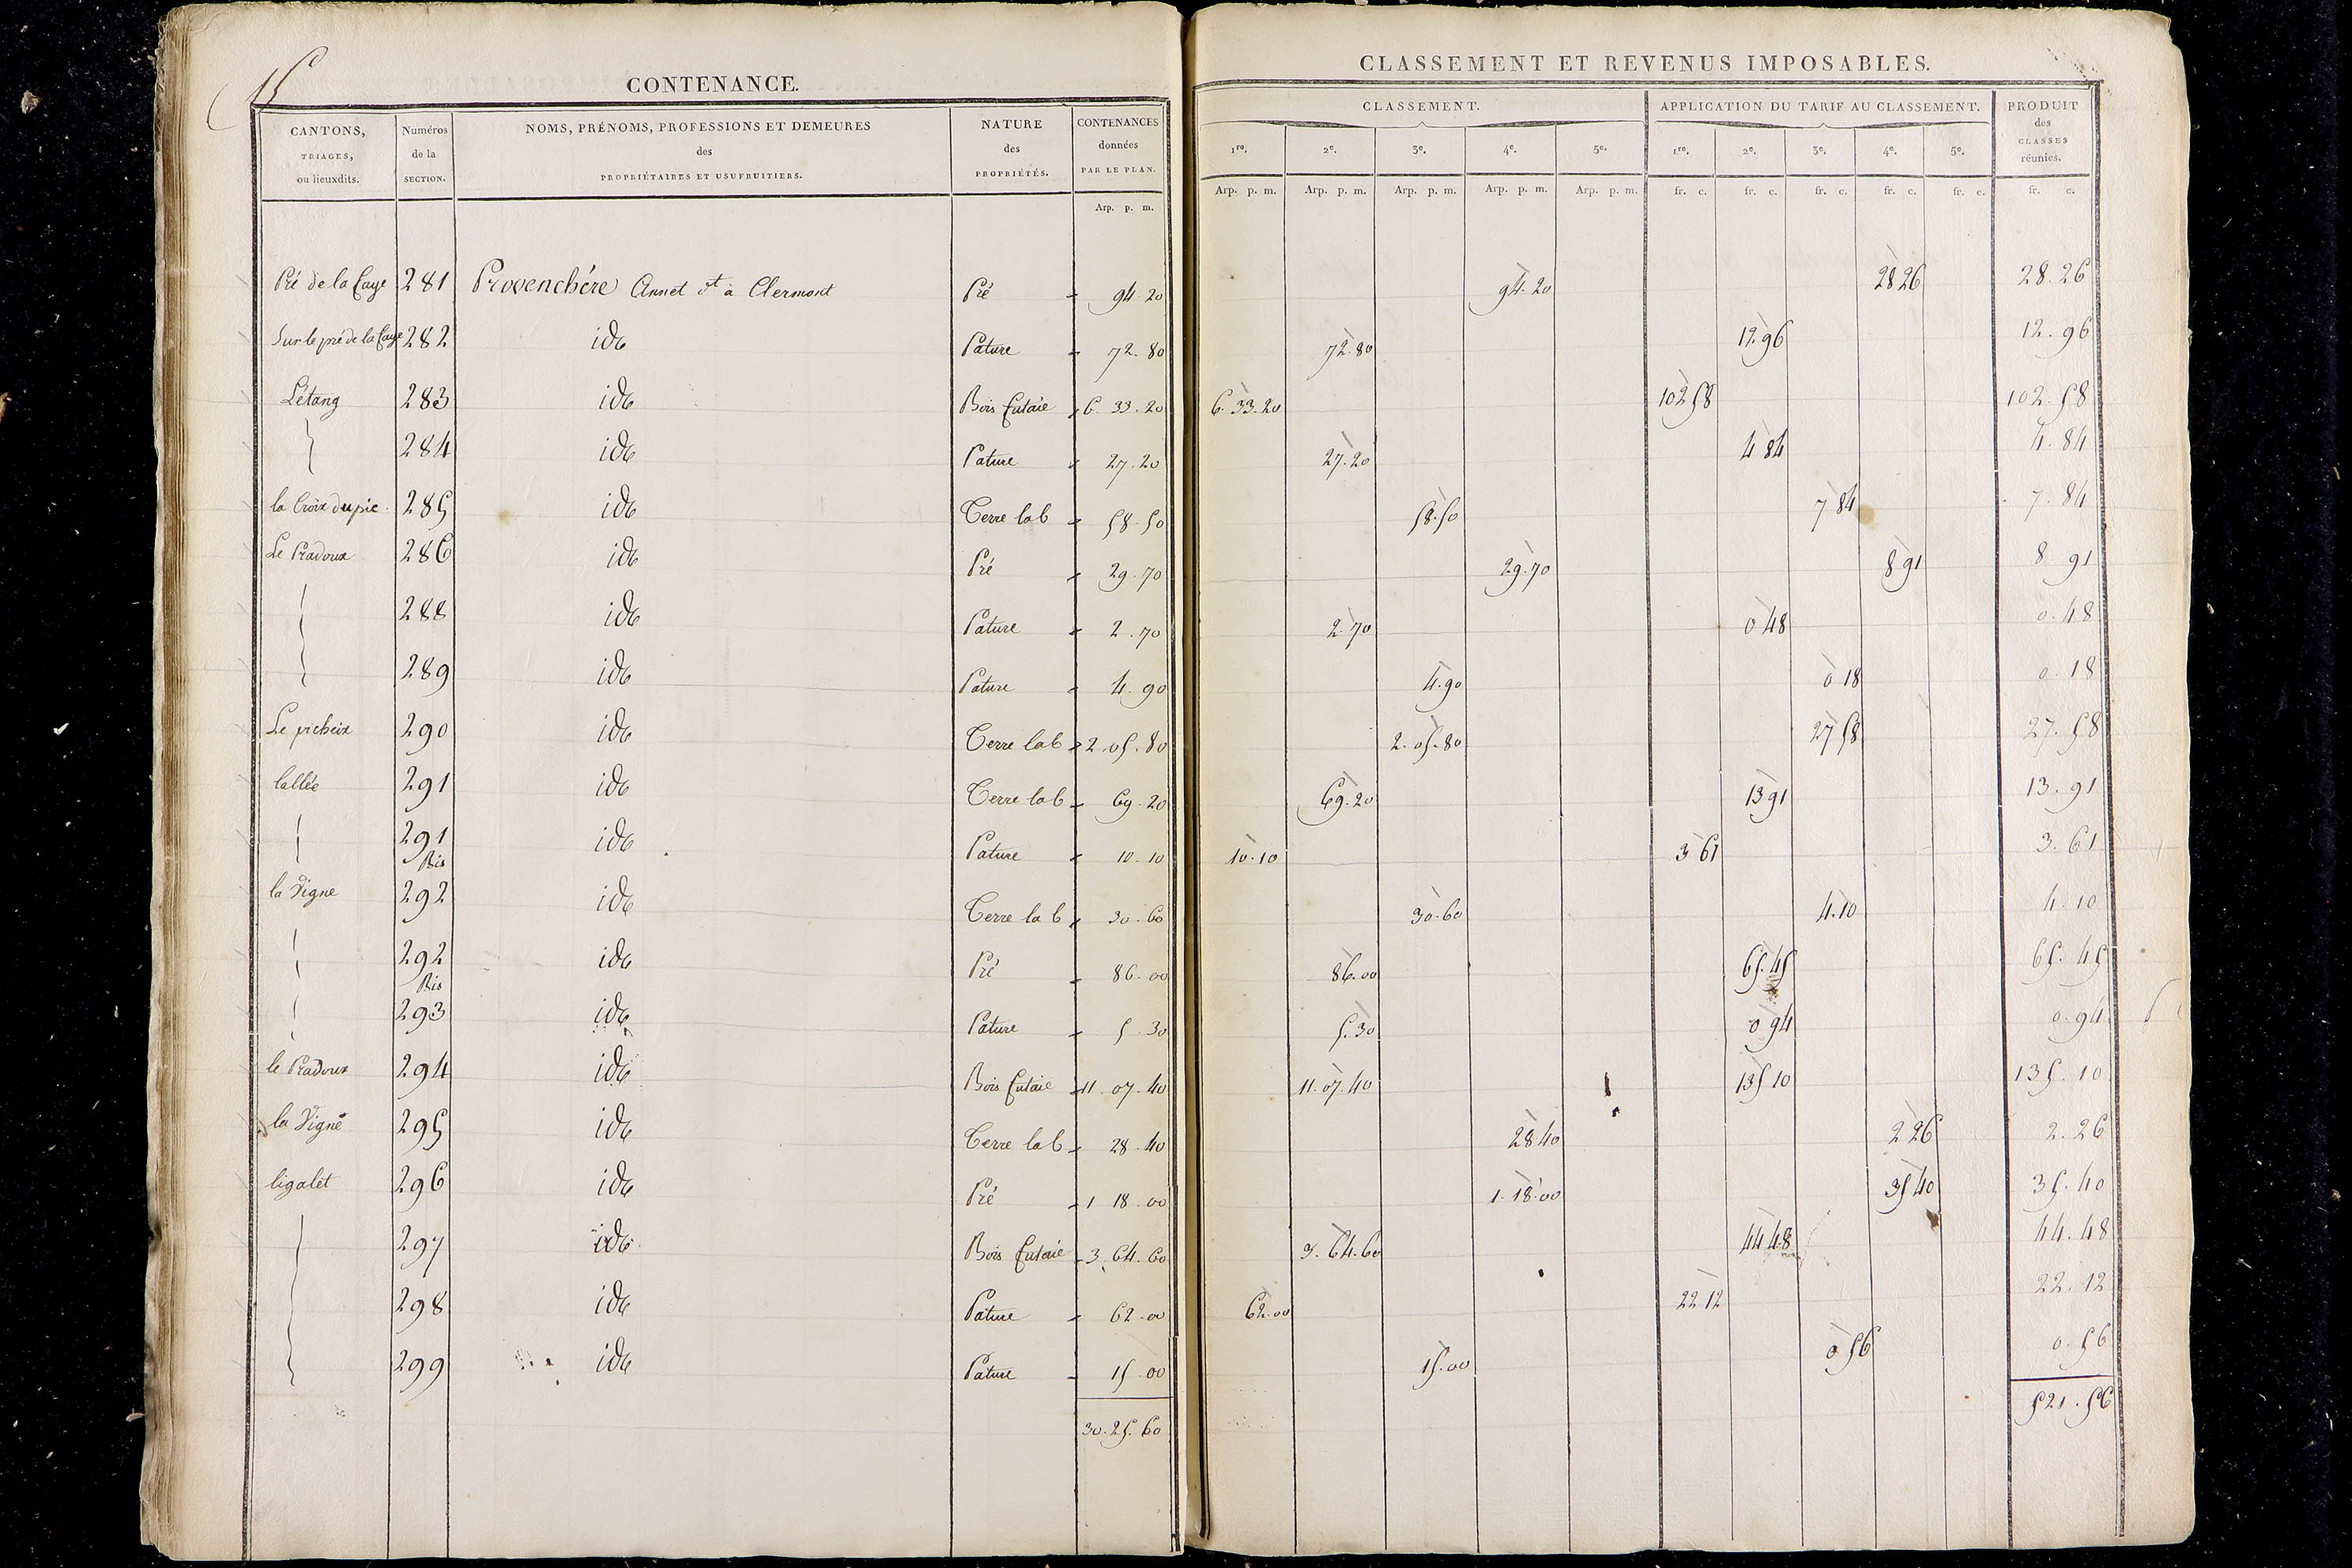 15
CONTENANCE.
CANTONS, TRIAGES, ou lieuxdits. | Numéros de la SECTION. | NOMS, PRÉNOMS, PROFESSIONS ET DEMEURES des PROPRIÉTAIRES ET USUFRUITIERS. | NATURE des PROPRIÉTÉS. | CONTENANCES données PAR LE PLAN.
Arp. p. m.
Pré de la Caye 281 Provenchére Annet dt à Clermont Pré 94.20
Sur le pré de la Caye 282 ide Pature 72.80
Létang 283 ide Bois futaie 6.33.20
284 ide Pature 27.20
la Croix du pic 285 ide Terre lab 58.50
Le Pradoux 286 ide Pré 29.70
288 ide Pature 2.70
289 ide Pature 4.90
Le picheix 290 ide Terre lab 2.05.80
lallée 291 ide Terre lab 69.20
291 Bis ide Pature 10.10
la Vigne 292 ide Terre lab 30.60
292 Bis ide Pré 86.00
293 ide Pature 5.30
le Pradoux 294 ide Bois futaie 11.07.40
la Vigne 295 ide Terre lab 28.40
ligalet 296 ide Pré 1 18.00
297 ide Bois futaie 3.64.60
298 ide Pature 62.00
299 ide Pature 15 00
30.25.60
CLASSEMENT ET REVENUS IMPOSABLES.
CLASSEMENT. | APPLICATION DU TARIF AU CLASSEMENT. | PRODUIT des CLASSES réunies.
1re. 2e. 3e. 4e. 5e. 1re. 2e. 3e. 4e. 5e.
Arp. p. m. Arp. p. m. Arp. p. m. Arp. p. m. Arp. p. m. fr. c. fr. c. fr. c. fr. c. fr. c. fr. c.
94.20 28 26 28.26
72.80 12 96 12.96
6.33.20 102 58 102.58
27.20 4 84 4.84
58.50 7 84 7.84
29.70 8 91 8 91
2.70 0 48 0.48
4.90 0 18 0.18
2.05.80 27 58 27.58
69.20 13 91 13.91
10.10 3 61 3.61
30.60 4.10 4.10
86.00 65.45 65.45
5.30 0 94 0.94
11.07.40 135 10 135.10
28 40 2 26 2.26
1.18.00 35 40 35.40
3.64.60 44 48 44.48
62.00 22 12 22.12
15.00 0 56 0.56
521.56